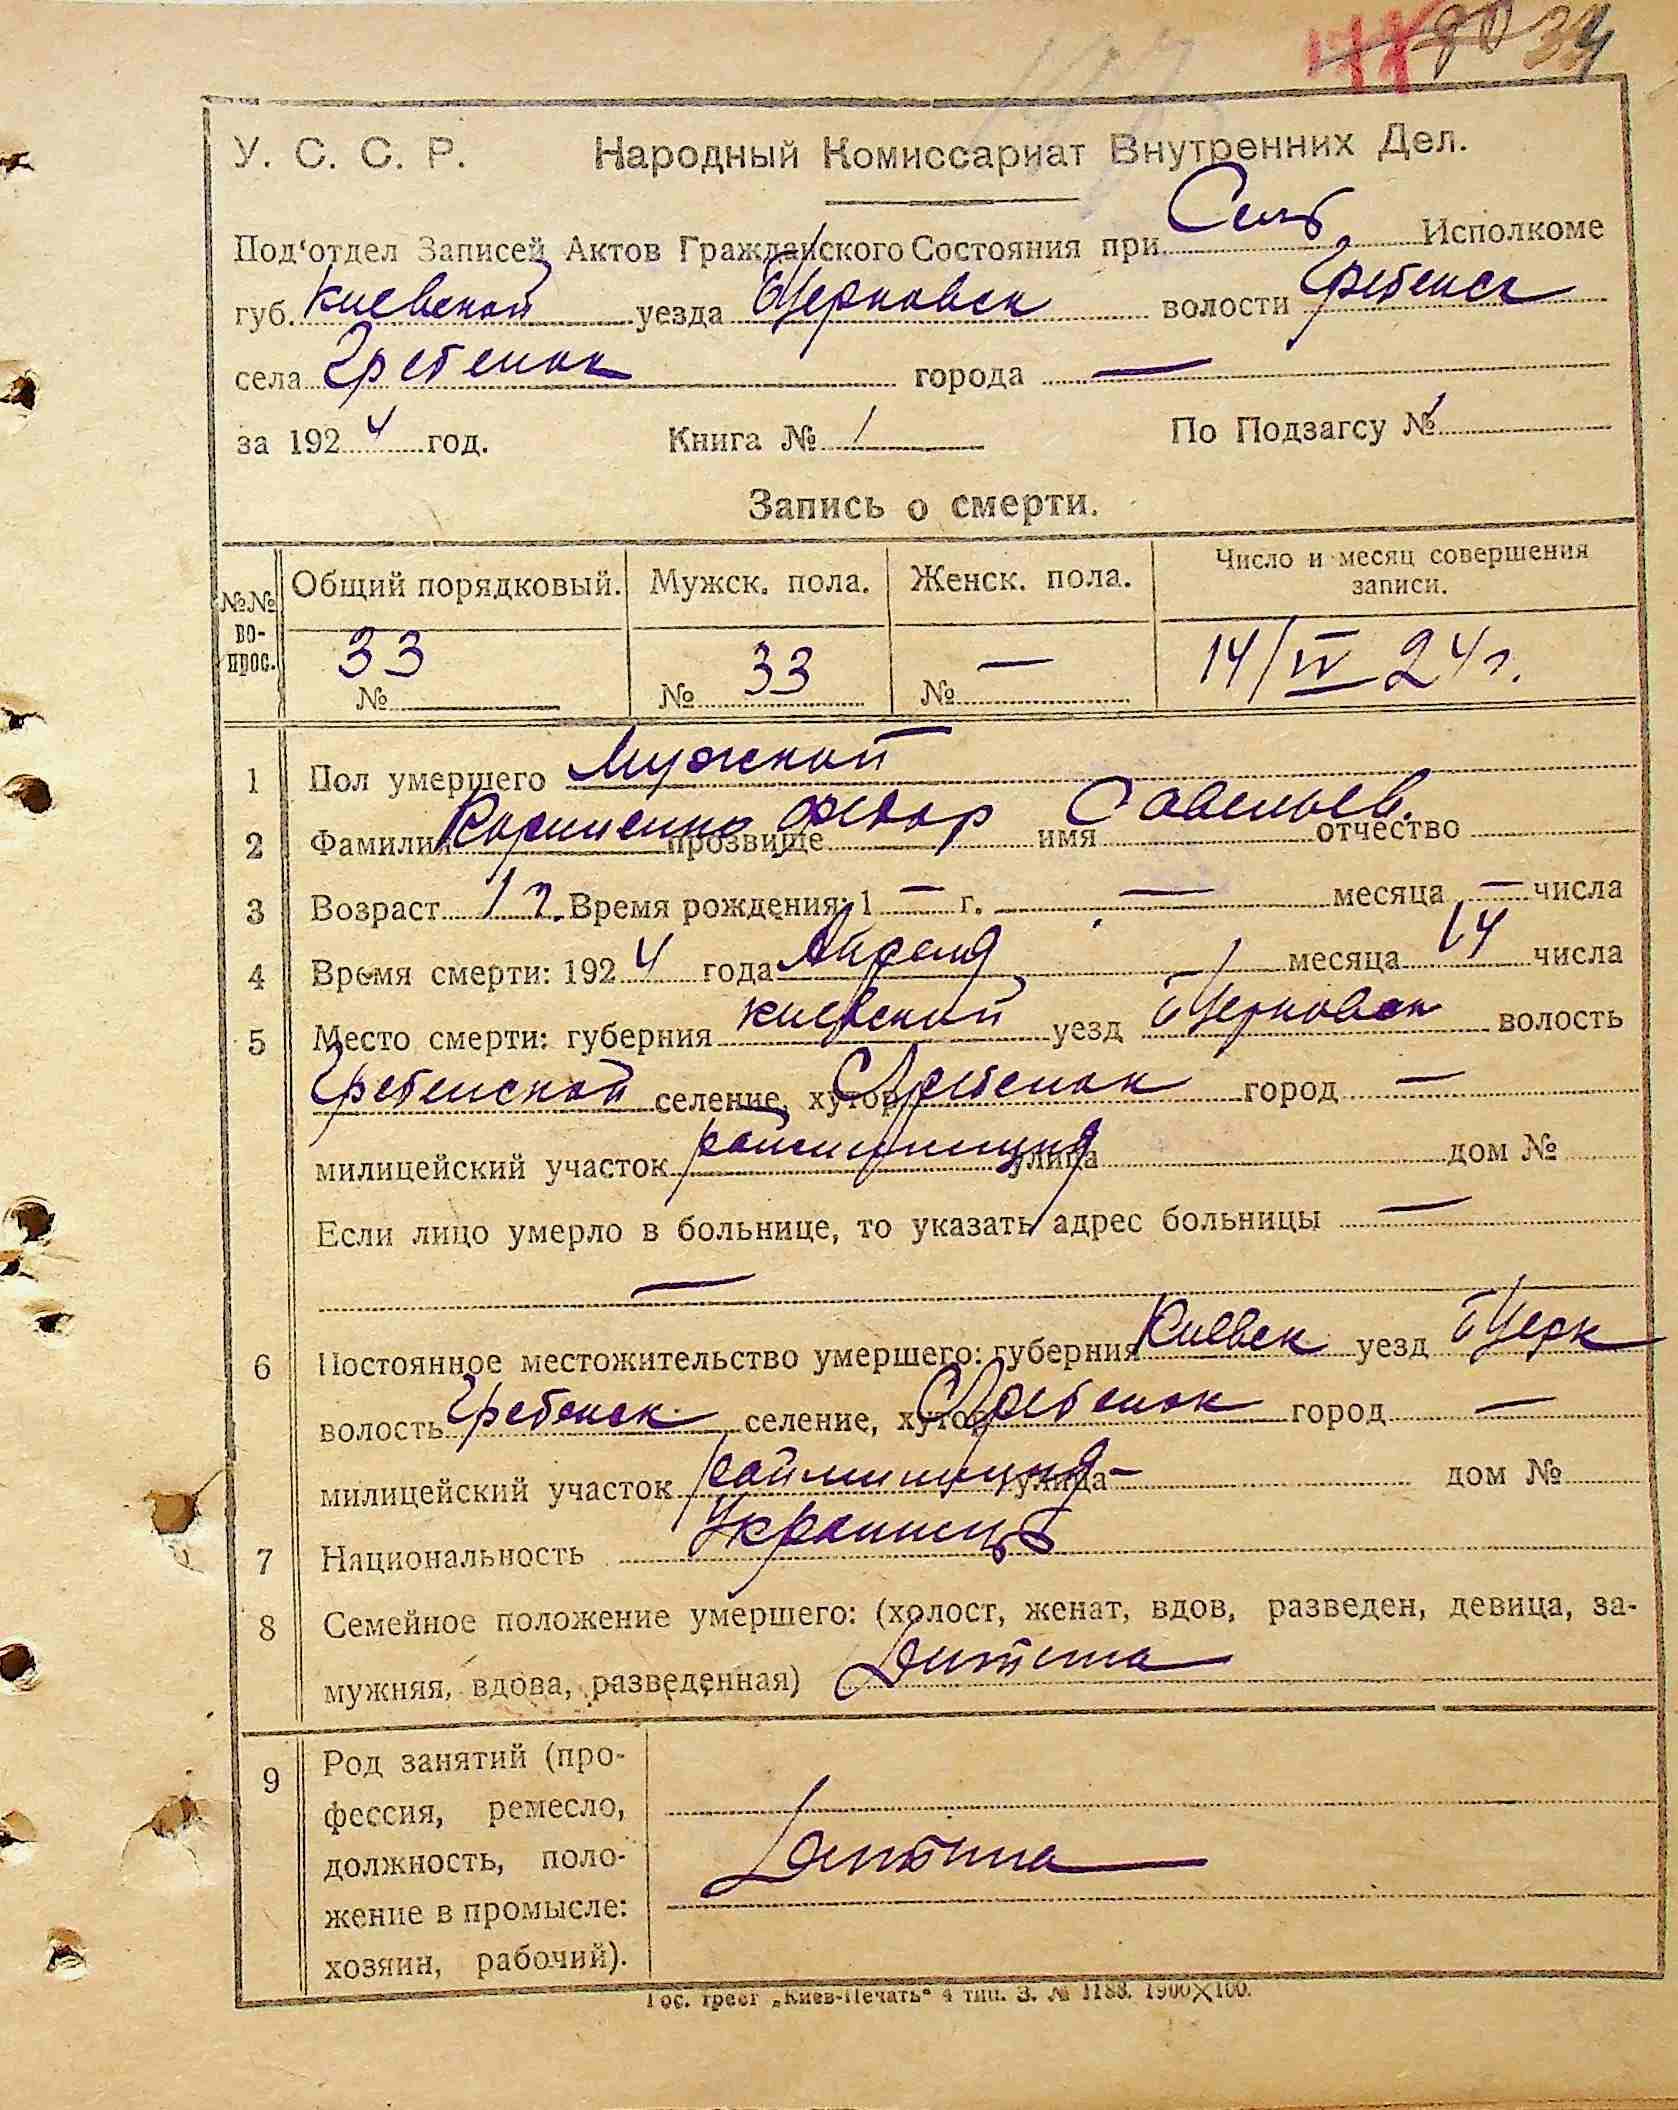 34
У. С. С. Р. Народный Комиссариат Внутренних Дел.
Под‘отдел Записей Актов Гражданского Состояния при Исполкоме
губ. Киевской уезда БЦерковск волости Гребенск
села Гребенок города —
за 1924 год. Книга № 1 По Подзагсу № 1
Запись о смерти.
№№ вопрос. Общий порядковый. Мужск. пола. Женск. пола. Число и месяц совершения записи.
№ 33 № 33 № — 14/IV 24 г.
1 Пол умершего Мужской
2 Фамилия прозвище Федор имя Савельев. отчество
3 Возраст 1 г. Время рождения: 1 — г. — месяца — числа
4 Время смерти: 1924 года Апреля месяца 14 числа
5 Место смерти: губерния Киевской уезд БЦерковск волость
Гребенской селение, хутор Гребенок город —
милицейский участок улица дом №
Если лицо умерло в больнице, то указать адрес больницы —
—
6 Постоянное местожительство умершего: губерния Киевск уезд БЦерк
волость Гребенск селение, хутор Гребенок город —
милицейский участок Раймилиция улица — дом №
7 Национальность Украинец
8 Семейное положение умершего: (холост, женат, вдов, разведен, девица, за-
мужняя, вдова, разведенная) Дитина
9 Род занятий (про-
фессия, ремесло,
должность, поло-
жение в промысле:
хозяин, рабочий).
Дитина
Гос. трест „Киев-Печать“ 4 тип. З. № 1183. 1900×100.